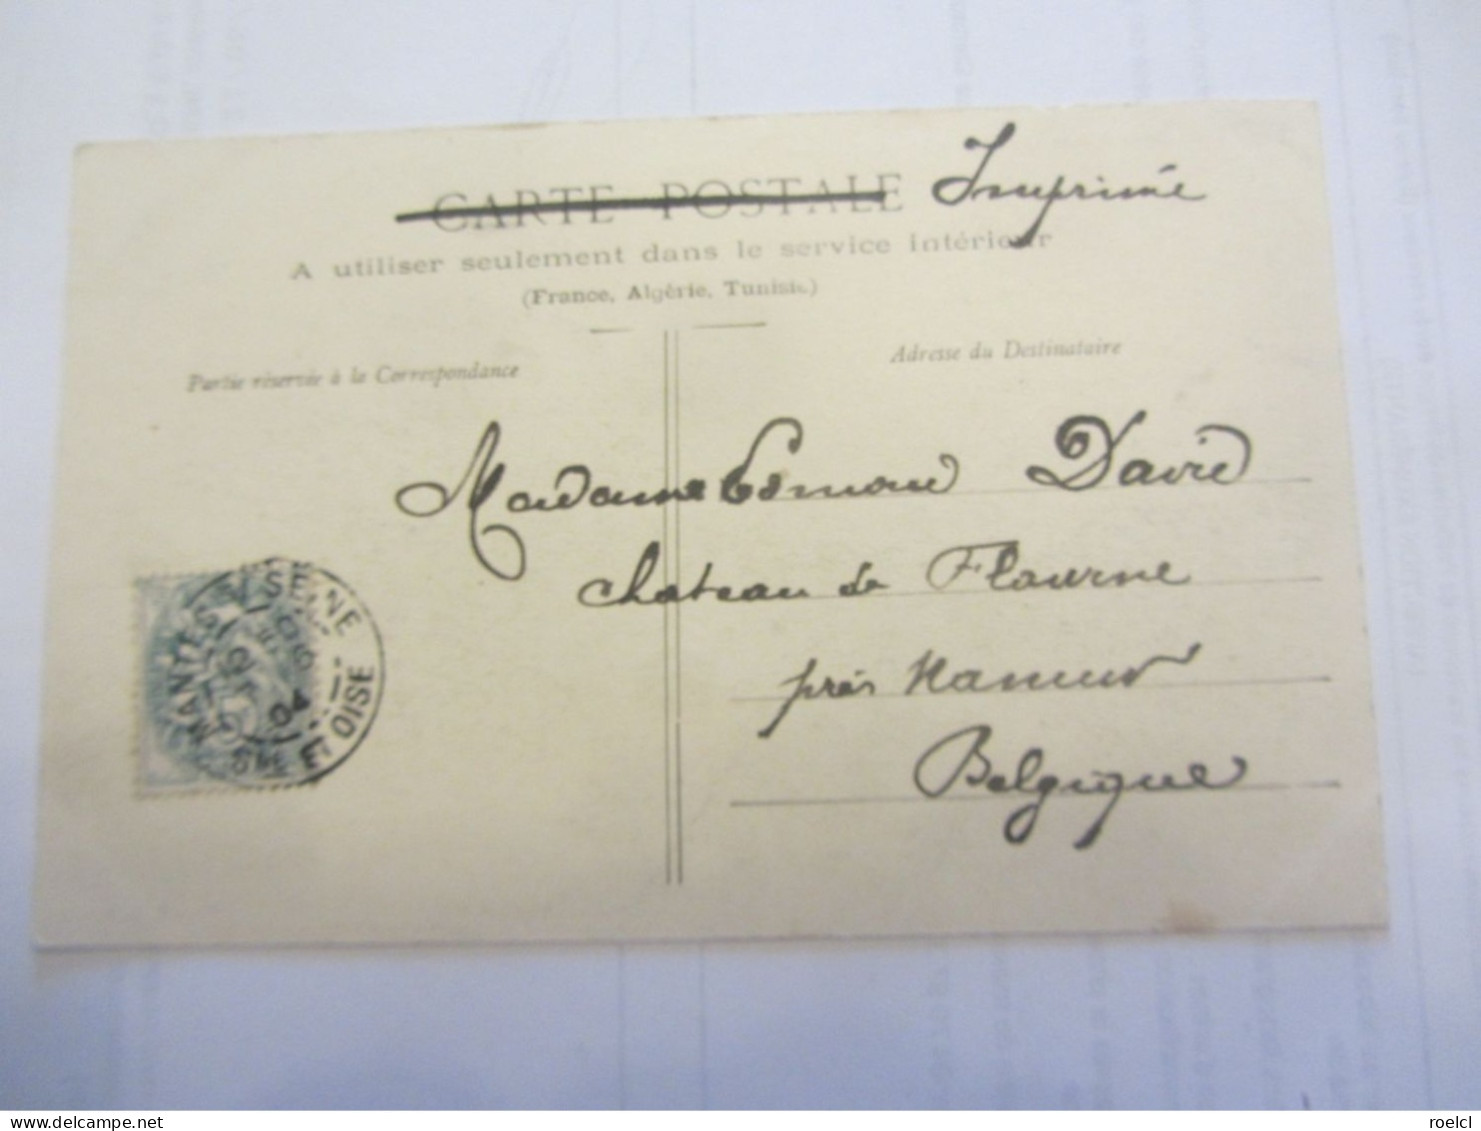 CARTE POSTALE Imprimée
A utiliser seulement dans le service intérieur
(France, Algérie, Tunisie)
Partie réservée à la Correspondance
Adresse du Destinataire
Madame Edmond David
Chateau de Flawinne
près Namur
Belgique
MANTES S SEINE
OCT
04
SNE ET OISE
delcampe.net
roelcl